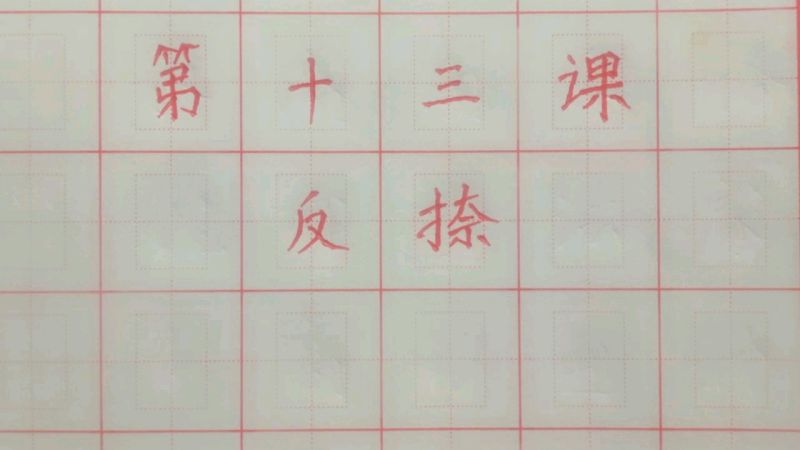 第十三课
反捺